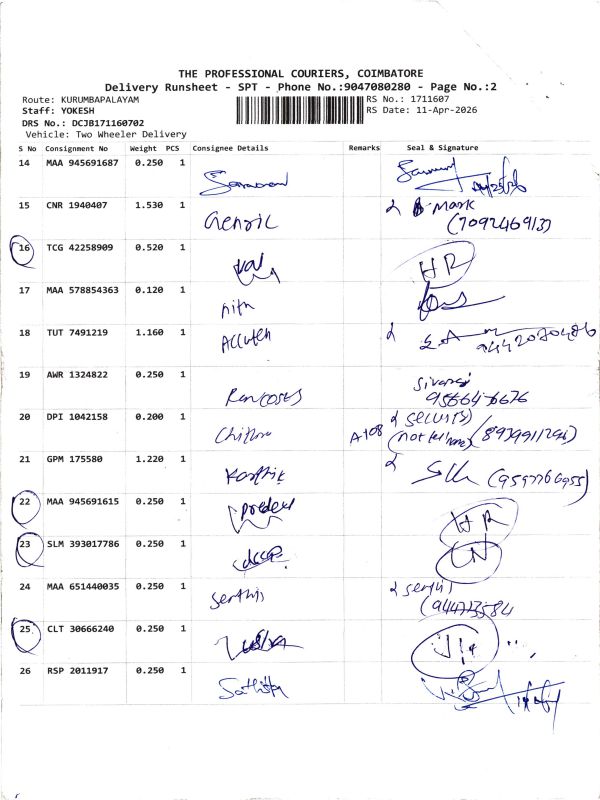 THE PROFESSIONAL COURIERS, COIMBATORE
Delivery Runsheet - SPT - Phone No.:9047080280 - Page No.:2
Route: KURUMBAPALAYAM
RS No.: 1711607
Staff: YOKESH
RS Date: 11-Apr-2026
DRS No.: DCJB171160702
Vehicle: Two Wheeler Delivery
S No Consignment No Weight PCS Consignee Details Remarks Seal & Signature
14 MAA 945691687 0.250 1
15 CNR 1940407 1.530 1 Genric Mark
(7092469137)
16 TCG 42258909 0.520 1 HR
17 MAA 578854363 0.120 1 Nith
18 TUT 7491219 1.160 1
9442080486
19 AWR 1324822 0.250 1
9566476676
20 DPI 1042158 0.200 1 Chithra A-108 security
21 GPM 175580 1.220 1 Karthik (9597766955)
22 MAA 945691615 0.250 1 HR
23 SLM 393017786 0.250 1
24 MAA 651440035 0.250 1
25 CLT 30666240 0.250 1
26 RSP 2011917 0.250 1 Sathish